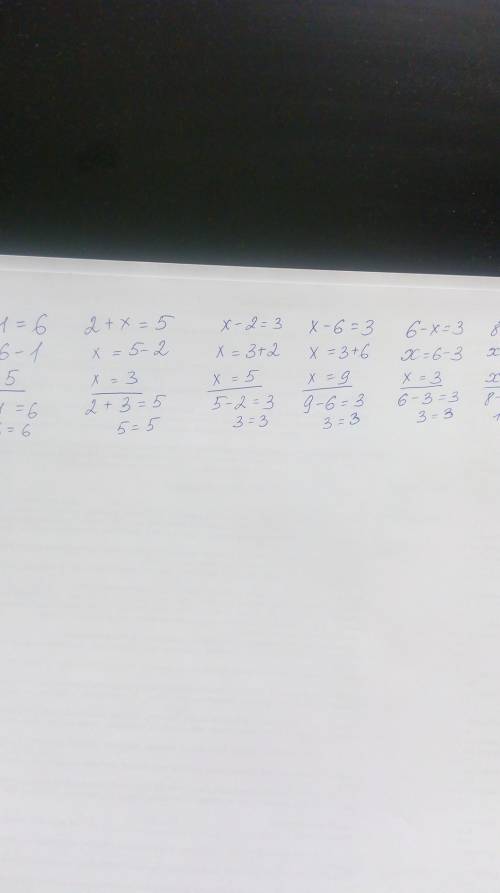 1 = 6
6 - 1
5
1 = 6
= 6
2 + x = 5
x = 5 - 2
x = 3
2 + 3 = 5
5 = 5
x - 2 = 3
x = 3 + 2
x = 5
5 - 2 = 3
3 = 3
x - 6 = 3
x = 3 + 6
x = 9
9 - 6 = 3
3 = 3
6 - x = 3
x = 6 - 3
x = 3
6 - 3 = 3
3 = 3
8
x
x
8 -
1